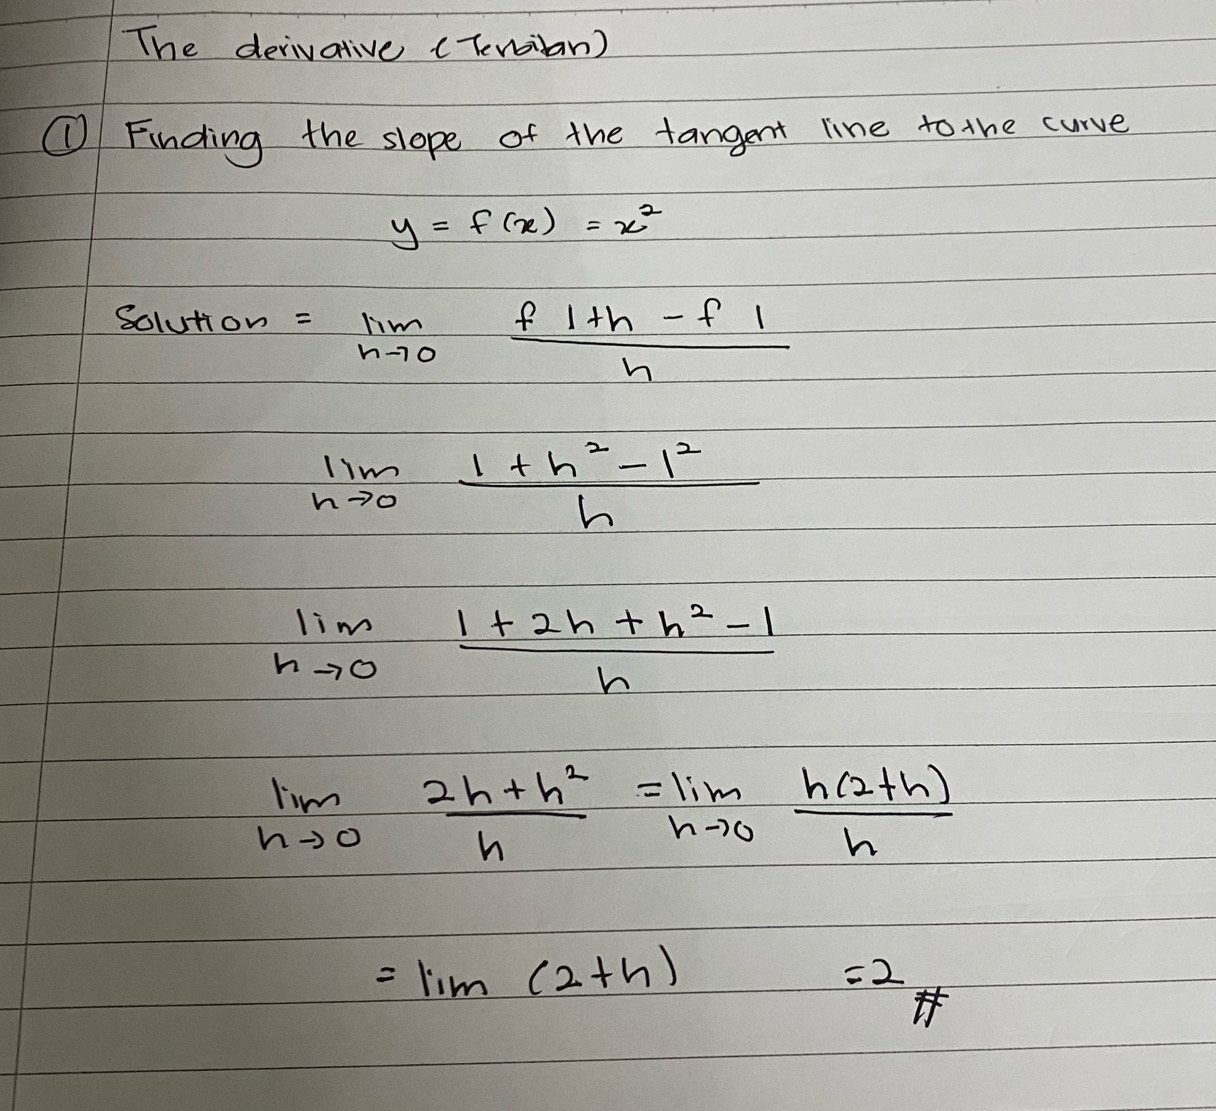 The derivative (Terbitan)
① Finding the slope of the tangent line to the curve
y = f(x) = x²
Solution = lim f 1+h - f 1
h→0 h
lim 1 + h² - 1²
h→0 h
lim 1 + 2h + h² - 1
h→0 h
lim 2h + h² = lim h(2+h)
h→0 h h→0 h
= lim (2+h) = 2 #